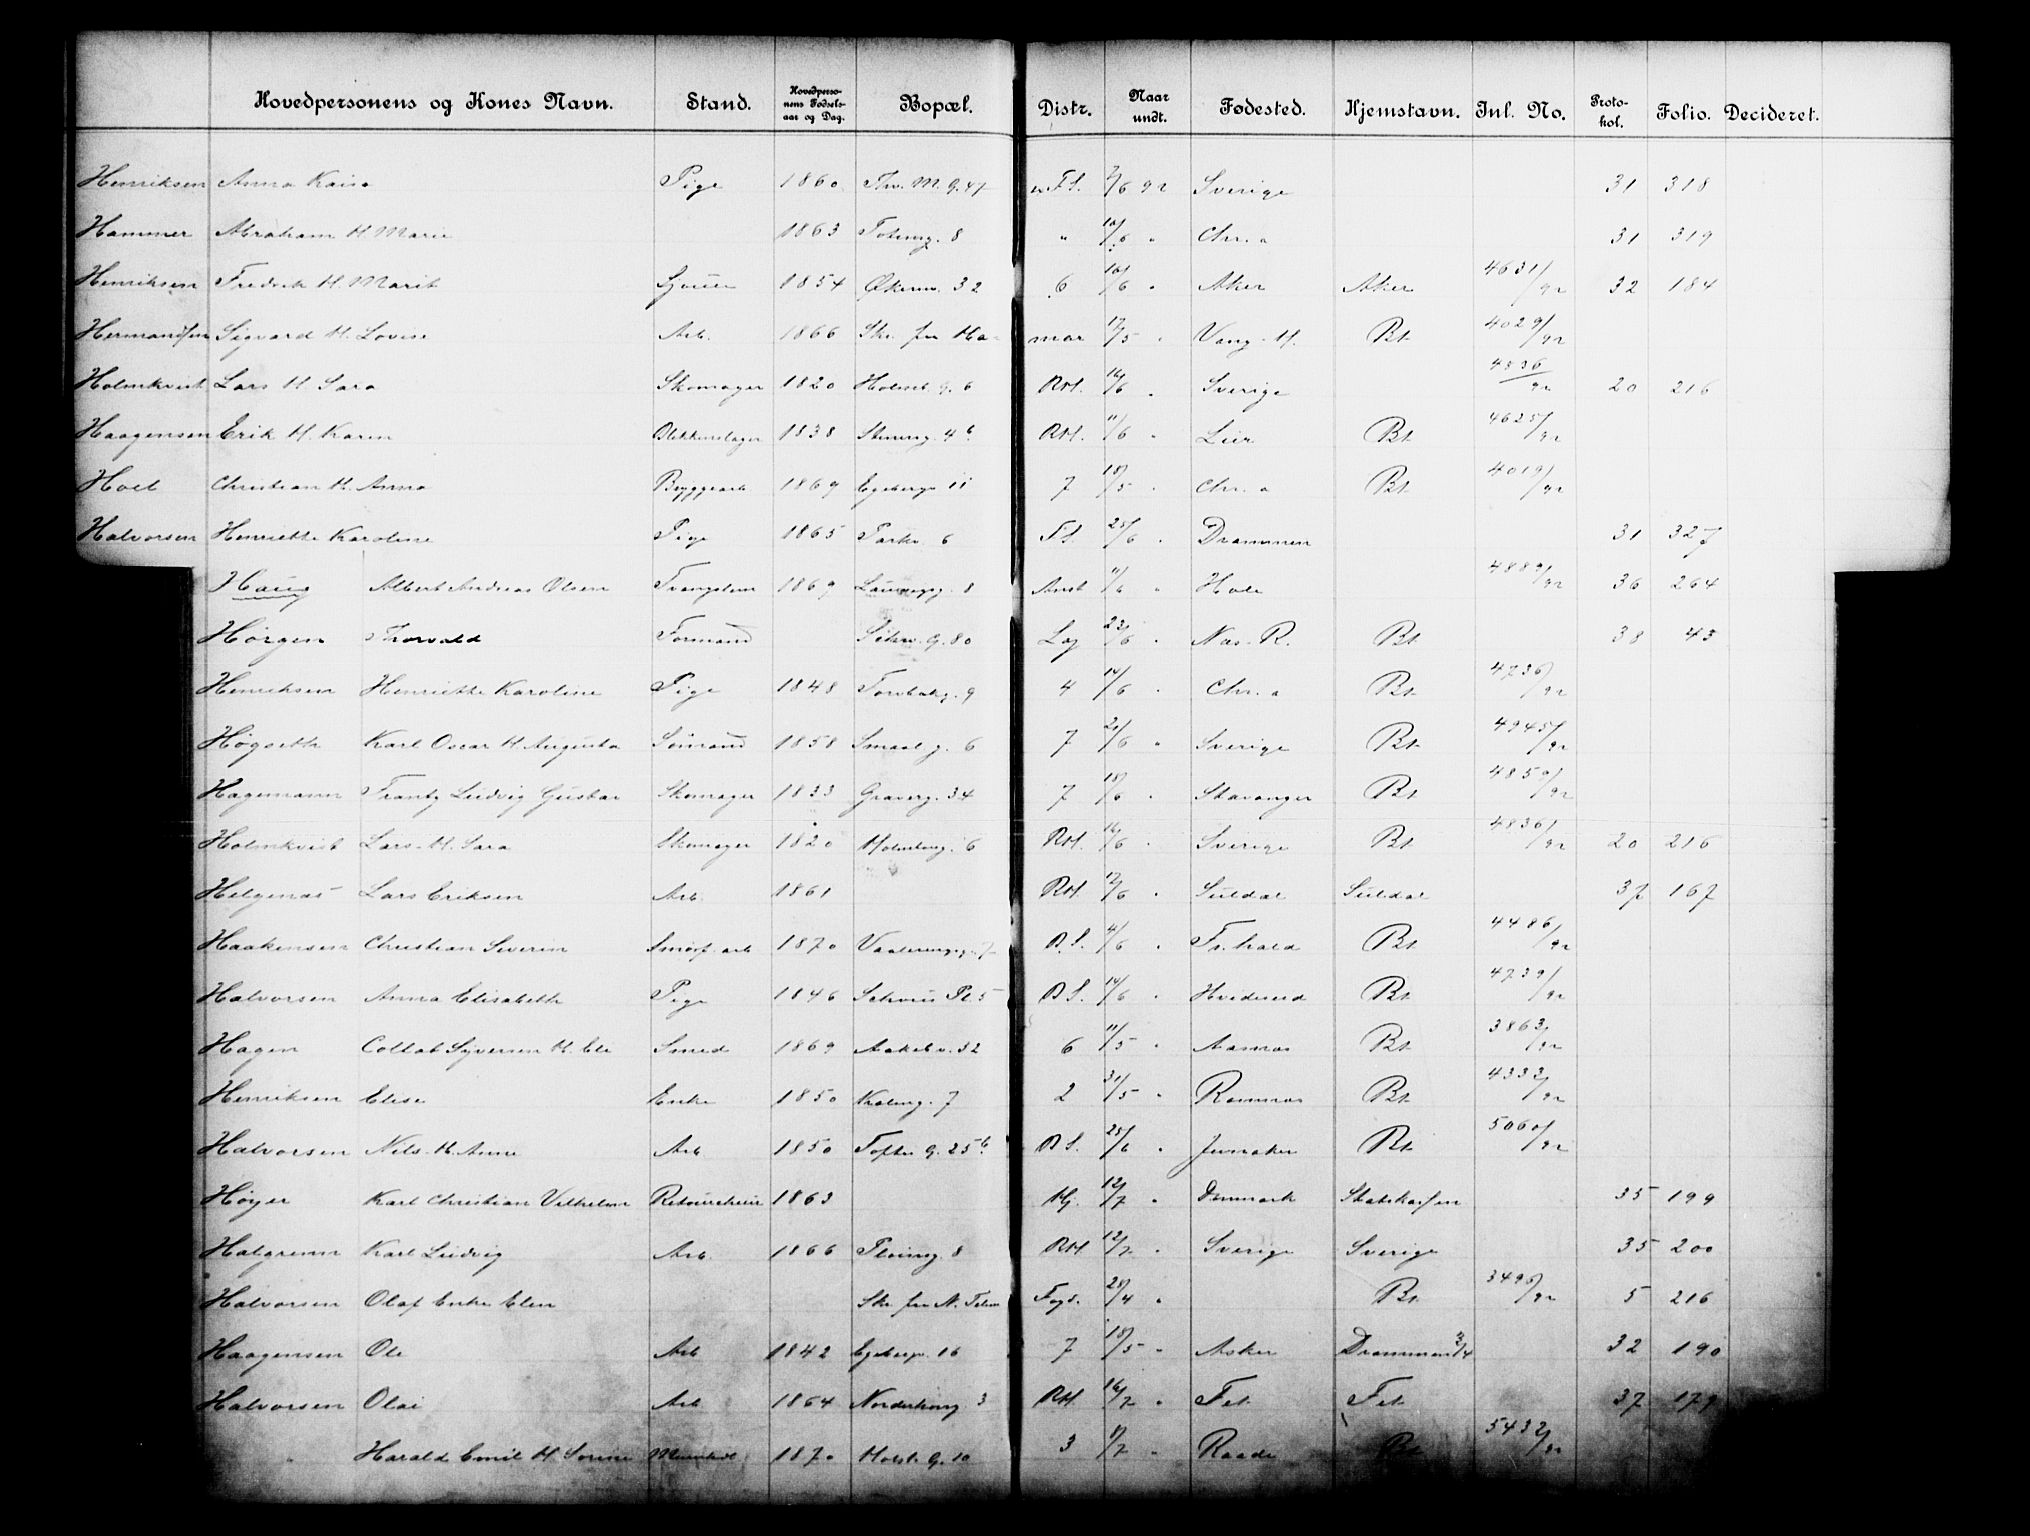 Hovedpersonens og Kones Navn. Stand. Hovedperso-nens Fødsels-aar og Dag. Bopæl. Distr. Naar undt. Fødested. Hjemstavn. Inl. No. Proto-kol. Folio. Decideret.
Henriksen Anna Kaisa Pige 1860 Thv. M. G. 47 7/6 92 Sverige 31 318
Hammer Abraham H. Marie 1863 8 " 10/6 " Chr.a 31 319
Henriksen Fredrik H. Marit 1854 Økernv. 32 6 10/6 " Aker Aker 4631/92 32 184
Hermandsen Sigvard H. Lovise Arb. 1866 Skr. fra Ha- mar 12/5 " Vang. H. Bt 4029/92
Holmkvist Lars H. Sara Skomager 1820 Holmb. g. 6 RH. 16/6 " Sverige 4836/92 20 216
Haagensen Erik H. Karen Blikkenslager 1838 Steners. 4 b RH. 11/6 " Lier Bt 4625/92
Hoel Christian H. Anna Bryggearb 1869 Egebergv. 11 7 18/5 " Chr.a Bt 4019/92
Halvorsen Henriette Karoline Pige 1865 Parkv. 6 25/6 " Drammen 31 327
Haug Albert Andreas Olsen 1869 8 11/6 " Hole 4889/92 36 264
Hørgen Thorvald Formand G. 80 22/6 " Nes. R. Bt 38 43
Henriksen Henriette Karoline Pige 1848 Torvbakg. 9 4 14/6 " Chr.a Bt 4736/92
Høgseth Karl Oscar H. Augusta Sømand 1858 Smaal. g. 6 7 20/6 " Sverige Bt 4945/92
Hagemann Frantz Ludvig Gustav Skomager 1833 Graverg. 34 7 18/6 " Stavanger Bt 4859/92
Holmkvist Lars H. Sara Skomager 1820 Holmbog. 6 RH. 16/6 " Sverige Bt 4836/92 20 216
Helgenæs Lars Eriksen Arb. 1861 RH. 17/6 " Suldal Suldal 37 167
Haakensen Christian Severin arb 1870 Vaalerengsg. 7 B.S. 4/6 " Fr.hald Bt 4486/92
Halvorsen Anna Elisabeth Pige 1846 Schous Pl. 5 B.S. 14/6 " Hvideseid Bt 4739/92
Hagen Syversen H. Eli Smed 1869 Aakebv. 32 6 11/5 " Aasnæs Bt 3863/92
Henriksen Elise Enke 1850 7 2 31/5 " Bt 4333/92
Halvorsen Nils H. Anne Arb 1850 Toftes G. 25 b B.S. 25/6 " Jevnaker Bt 5060/92
Høyer Karl Christian Vilhelm 1863 Hj. 12/7 " Danmark Statskassen 35 199
Halgrenn Karl Ludvig Arb. 1866 8 RH. 12/7 " Sverige Sverige 35 200
Halvorsen Olaf Enke Elen Skr. fra N. Telem Fogd. 28/4 " Bt 3496/92 5 216
Haagensen Ole Arb 1842 Egebergv. 16 7 18/5 " Asker Drammen 3/4 32 190
Halvorsen Olai Arb 1864 3 RH. 16/7 " Fet Fet 37 179
" Harald Emil H. Sorine 1870 Holst. G. 10 3 1/7 " Raade Bt 5432/92